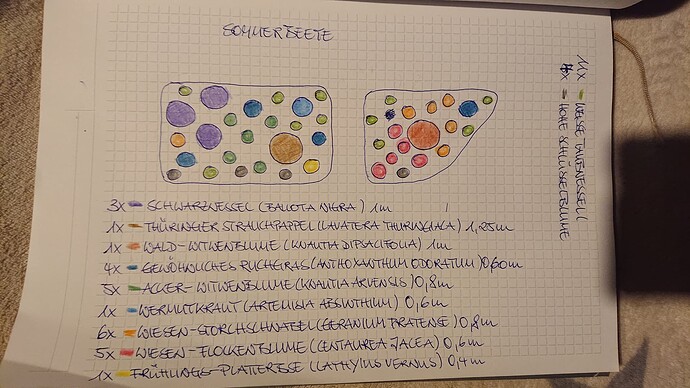 SOMMERBEETE
11x - WEISSE TAUBNESSEL
6x - HOHE SCHLÜSSELBLUME
3x - SCHWARZNESSEL (BALLOTA NIGRA) 1m
1x - THÜRINGER STRAUCHPAPPEL (LAVATERA THURINGIACA) 1,25m
1x - WALD-WITWENBLUME (KNAUTIA DIPSACIFOLIA) 1m
4x - GEWÖHNLICHES RUCHGRAS (ANTHOXANTHUM ODORATUM) 0,60m
5x - ACKER-WITWENBLUME (KNAUTIA ARVENSIS) 0,8m
1x - WERMUTKRAUT (ARTEMISIA ABSINTHIUM) 0,6m
6x - WIESEN-STORCHSCHNABEL (GERANIUM PRATENSE) 0,8m
5x - WIESEN-FLOCKENBLUME (CENTAUREA JACEA) 0,6m
1x - FRÜHLINGS-PLATTERBSE (LATHYRUS VERNUS) 0,4m